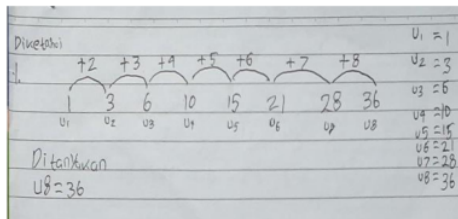 Diketahui
1. +2 +3 +4 +5 +6 +7 +8
1 3 6 10 15 21 28 36
U1 U2 U3 U4 U5 U6 U7 U8
Ditanyakan
U8 = 36
U1 = 1
U2 = 3
U3 = 6
U4 = 10
U5 = 15
U6 = 21
U7 = 28
U8 = 36